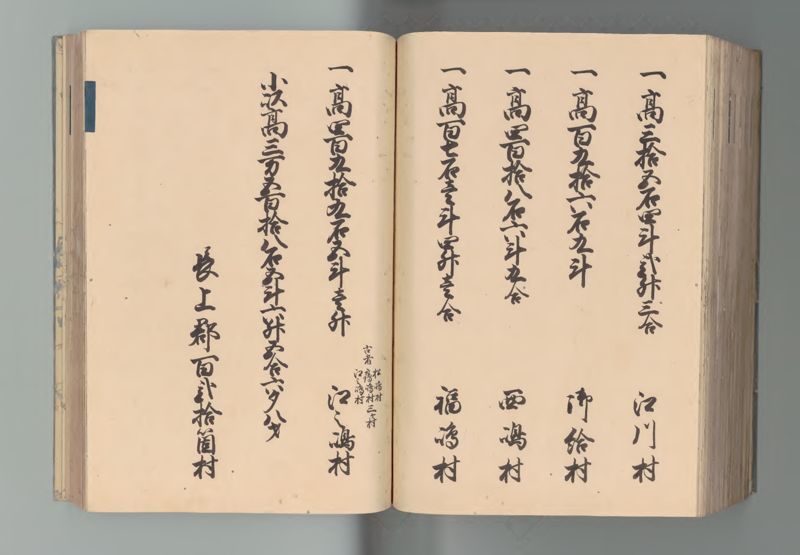 一高三拾五石四斗弐升三合 江川村
一高百九拾六石九斗 御給村
一高四百拾八石六斗九合 西嶋村
一高百七石壱斗四升壱合 福嶋村
一高四百九拾九石五斗壱升 江之嶋村
古者 松嶋村
鶴嶋村 三ヶ村
江之嶋村
小以高三万五百拾八石五斗六升五合六夕八才
長上郡百弐拾箇村